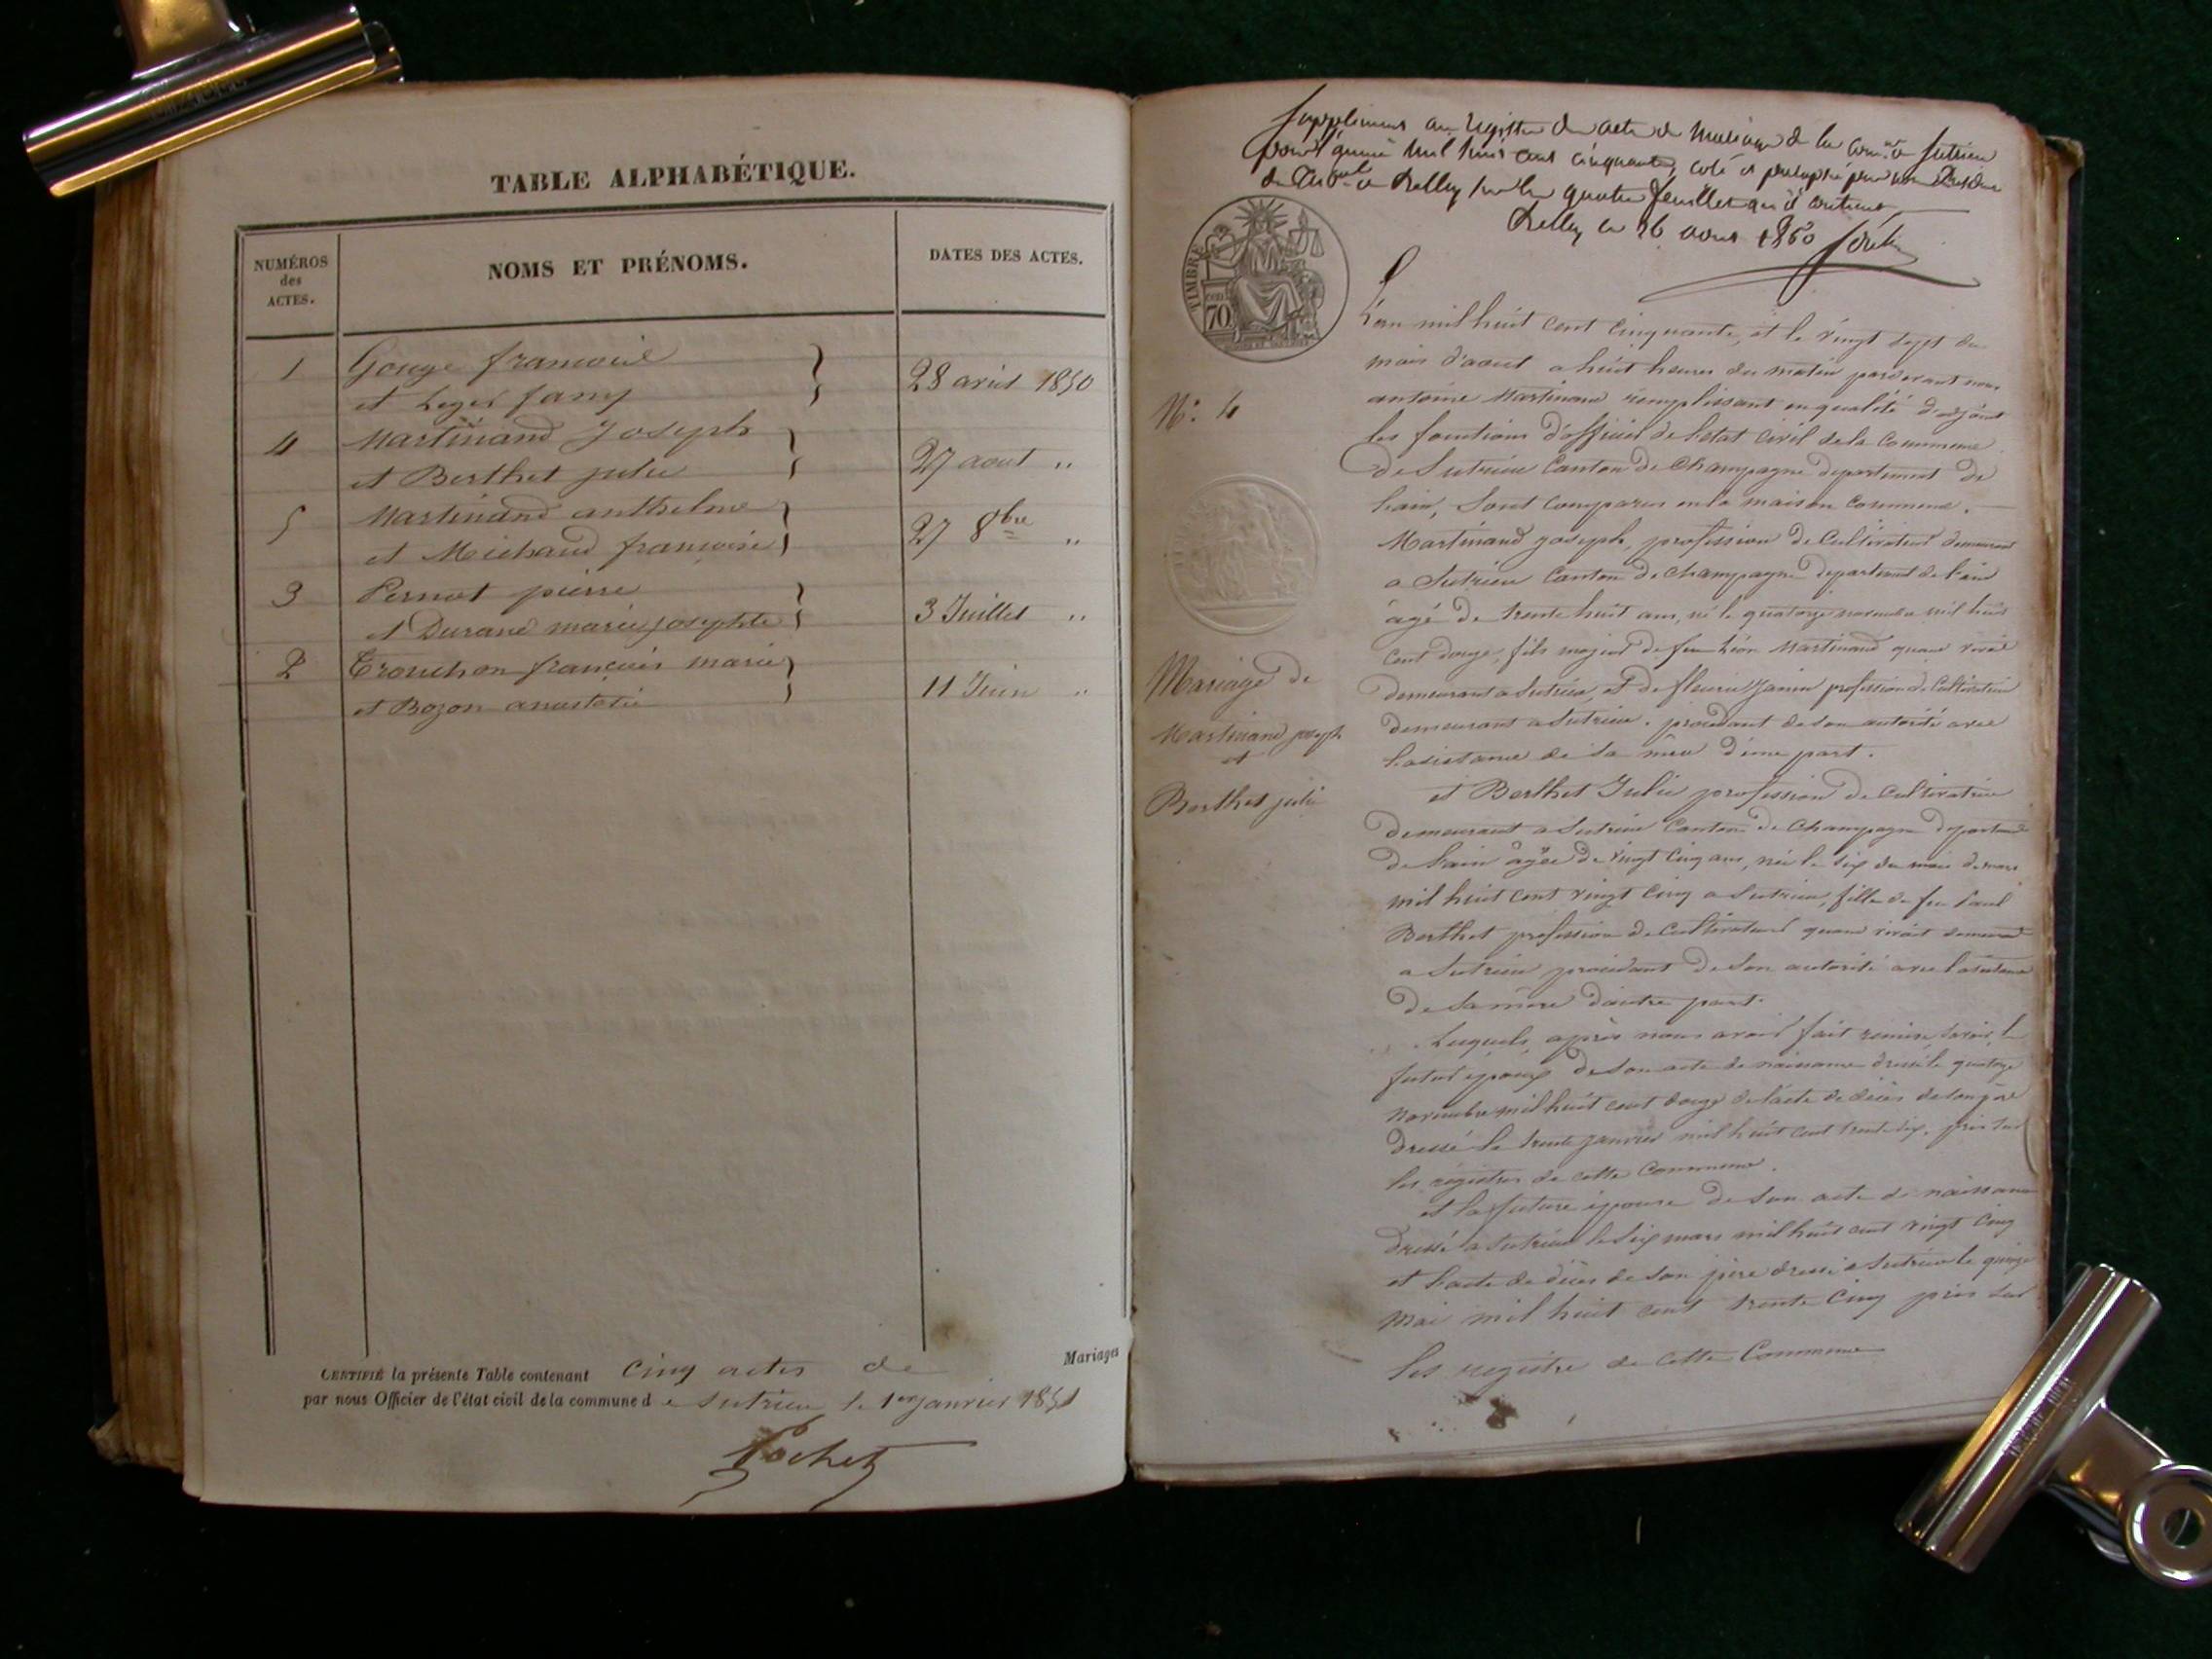 TABLE ALPHABÉTIQUE.
NUMÉROS
des
ACTES.
NOMS ET PRÉNOMS.
DATES DES ACTES.
1 Gouge francoise
et Leger fany 28 avril 1850
4 Martinand Joseph
et Berthet julie 27 aout "
5 Martinand anthelme
et Michaud françoise 27 8bre "
3 Pernot pierre
et Durand marie josephte 3 Juillet "
2 Trouchon françois marie
et Bozon anastasie 11 Juin "
CERTIFIÉ la présente Table contenant Cinq actes de Mariages
par nous Officier de l'état civil de la commune de Sutrieu le 1er janvier 1851
Pochet
Supplément au registre des actes de mariage de la comne de Sutrieu
pour l'année mil huit cent cinquante, coté et paraphé par
du de Belley sur les quatre feuillets qu'il contient
Belley le 26 aout 1850
TIMBRE
70
L'an mil huit cent cinquante, et le vingt sept du
mois d'aout a huit heures du matin pardevant nous
antoine Martinand remplissant en qualité d'adjoint
les fonctions d'officier de l'etat civil de la Commune
de Sutrieu Canton de Champagne departement de
lain, sont comparus en la maison Commune.
N° 4
Martinand joseph, profession de Cultivateur demeurant
a Sutrieu Canton de Champagne departement de l'ain
âgé de trente huit ans, né le quatorze novembre mil huit
cent douze, fils majeur de feu Martinand quand vivait
demeurant a Sutrieu, et de fleurie Janin profession de Cultivatrice
demeurant a Sutrieu. procedant de son autorité avec
lasistance de sa mere d'une part.
Mariage de
Martinand joseph
et
Berthet julie
et Berthet Julie profession de Cultivatrice
demeurant a Sutrieu Canton de Champagne departement
de lain âgée de vingt cinq ans, née le six du mois de mars
mil huit cent vingt cinq a Sutrieu, fille de feu Paul
Berthet profession de Cultivateur quand vivait demeurant
a Sutrieu procedant de son autorité avec lasistance
de sa mere d'autre part.
Lesquels, après nous avoir fait remise savoir, le
futur epoux de son acte de naissance dressé le quatorze
novembre mil huit cent douze de l'acte de décès de son pere
dressé le trente janvier mil huit cent trente six, pris sur
les registres de cette Commune.
et la future épouse de son acte de naissance
dressé a Sutrieu le six mars mil huit cent vingt cinq
et lacte de décès de son père dressé a Sutrieu le quinze
mai mil huit cent trente cinq pris sur
les registre de cette Commune